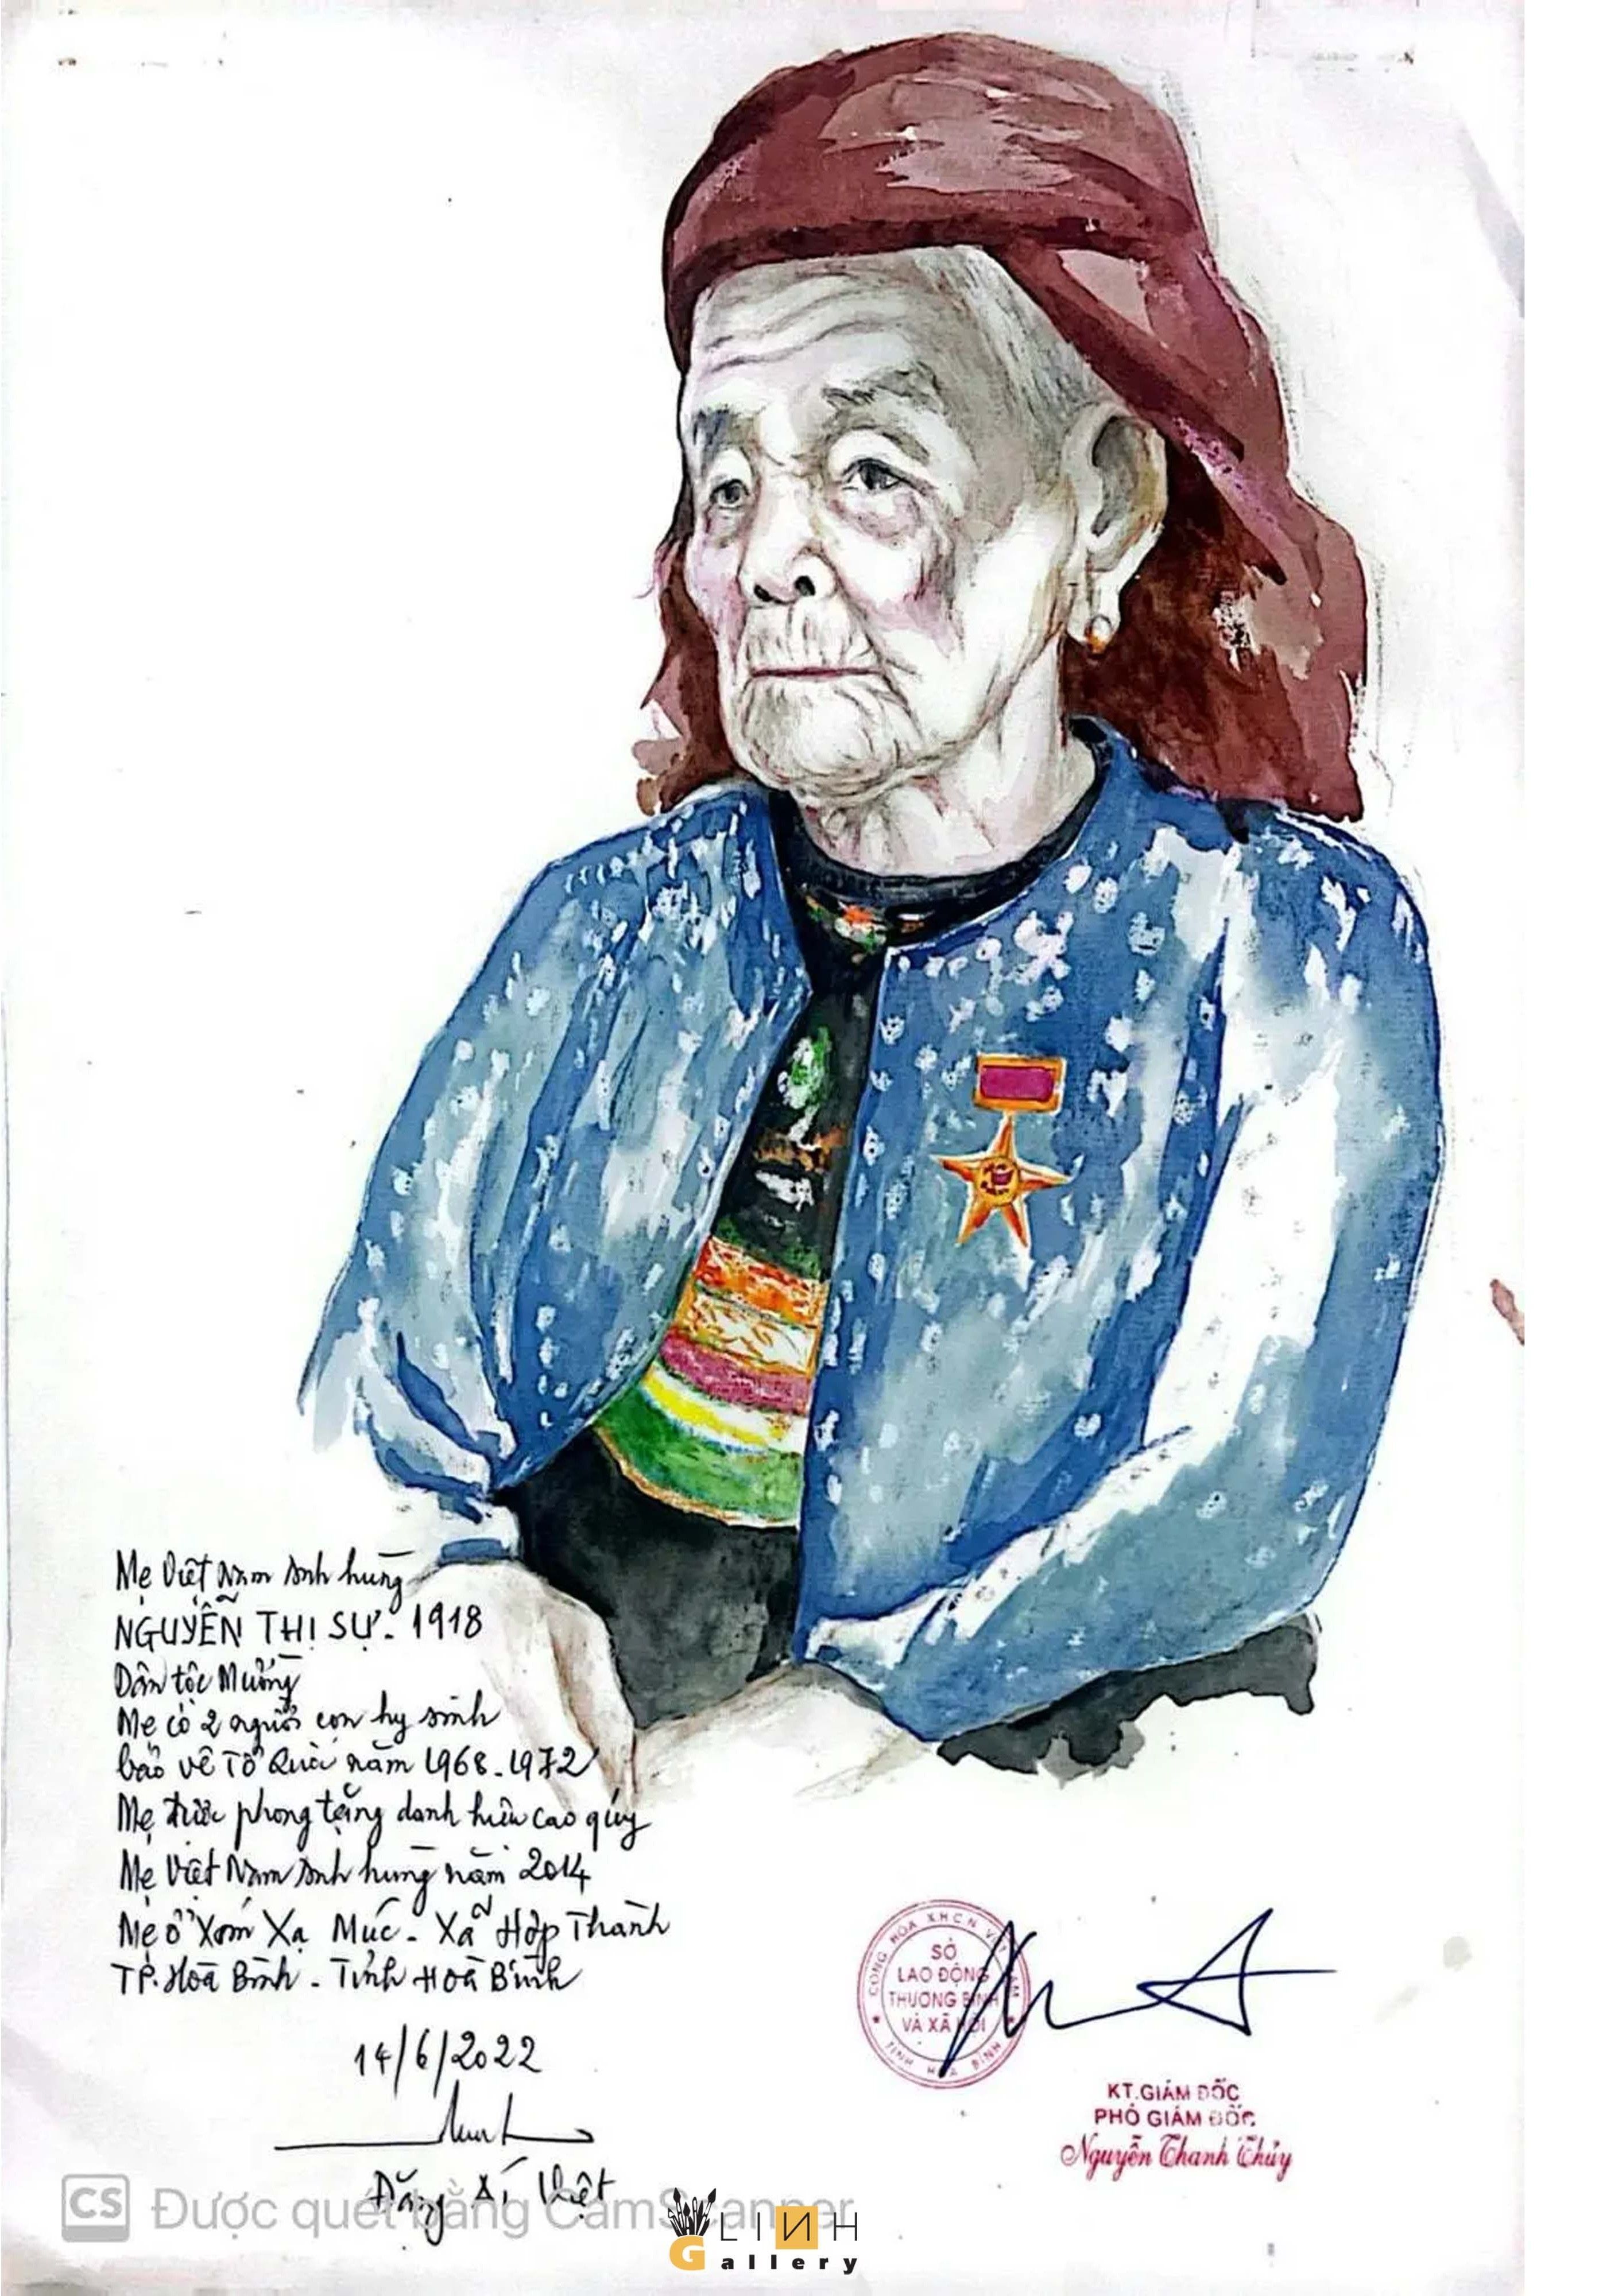 Mẹ Việt Nam Anh hùng
NGUYỄN THỊ SỰ - 1918
Dân tộc Mường
Mẹ có 2 người con hy sinh
bảo vệ Tổ Quốc năm 1968-1972
Mẹ được phong tặng danh hiệu cao quý
Mẹ Việt Nam Anh hùng năm 2014
Mẹ ở Xóm Xạ Múc - Xã Hợp Thành
TP. Hoà Bình - Tỉnh Hoà Bình
14/6/2022
Đặng Ái Việt
CỘNG HÒA XHCN VIỆT NAM
SỞ
LAO ĐỘNG
THƯƠNG BINH
VÀ XÃ HỘI
TỈNH HÒA BÌNH
KT.GIÁM ĐỐC
PHÓ GIÁM ĐỐC
Nguyễn Thanh Thủy
CS Được quét bằng CamScanner
LINH
Gallery